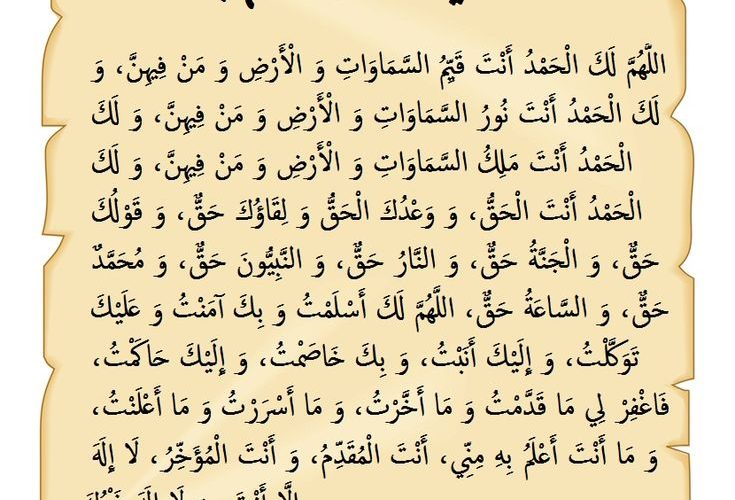 اللَّهُمَّ لَكَ الْحَمْدُ أَنْتَ قَيِّمُ السَّمَاوَاتِ وَ الْأَرْضِ وَ مَنْ فِيهِنَّ، وَ
لَكَ الْحَمْدُ أَنْتَ نُورُ السَّمَاوَاتِ وَ الْأَرْضِ وَ مَنْ فِيهِنَّ، وَ لَكَ
الْحَمْدُ أَنْتَ مَلِكُ السَّمَاوَاتِ وَ الْأَرْضِ وَ مَنْ فِيهِنَّ، وَ لَكَ
الْحَمْدُ أَنْتَ الْحَقُّ، وَ وَعْدُكَ الْحَقُّ وَ لِقَاؤُكَ حَقٌّ، وَ قَوْلُكَ
حَقٌّ، وَ الْجَنَّةُ حَقٌّ، وَ النَّارُ حَقٌّ، وَ النَّبِيُّونَ حَقٌّ، وَ مُحَمَّدٌ
حَقٌّ، وَ السَّاعَةُ حَقٌّ، اللَّهُمَّ لَكَ أَسْلَمْتُ وَ بِكَ آمَنْتُ وَ عَلَيْكَ
تَوَكَّلْتُ، وَ إِلَيْكَ أَنَبْتُ، وَ بِكَ خَاصَمْتُ، وَ إِلَيْكَ حَاكَمْتُ،
فَاغْفِرْ لِي مَا قَدَّمْتُ وَ مَا أَخَّرْتُ، وَ مَا أَسْرَرْتُ وَ مَا أَعْلَنْتُ،
وَ مَا أَنْتَ أَعْلَمُ بِهِ مِنِّي، أَنْتَ الْمُقَدِّمُ، وَ أَنْتَ الْمُؤَخِّرُ، لَا إِلَهَ